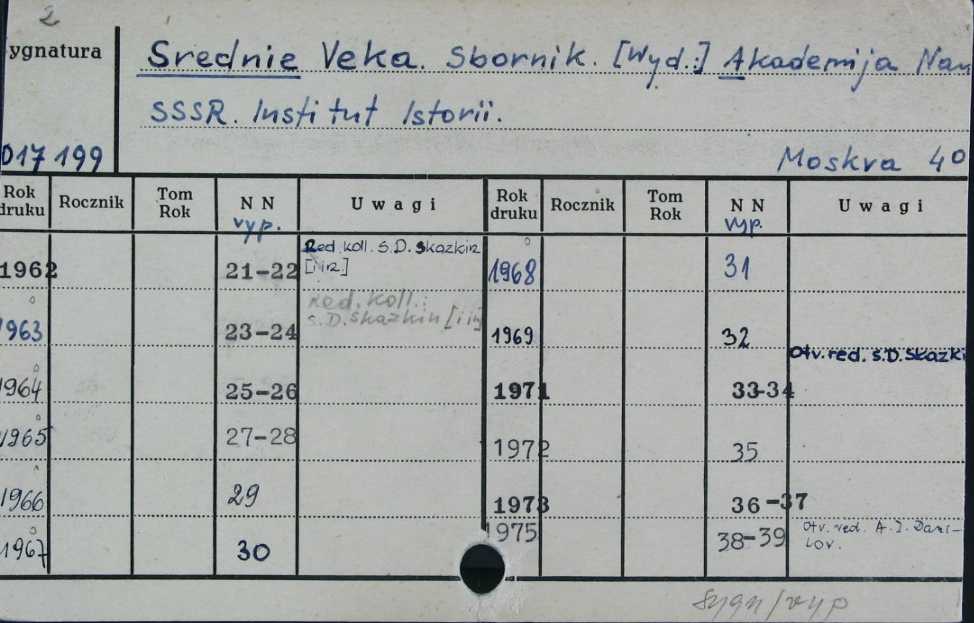 2
ygnatura
Srednie Veka. Sbornik. [Wyd.:] Akademija Nau
SSSR. Institut Istorii.
017 199
Moskva 4°
Rok druku Rocznik Tom Rok N N U w a g i Rok druku Rocznik Tom Rok N N U w a g i
vyp. vyp.
1962 21-22 Red. Koll. S.D. Skazkin 1968 31
1963 23-24 Red. Koll.: S.D. Skazkin [i in] 1969 32
Otv. red. S.D. Skazki
1964 25-26 1971 33-34
1965 27-28 1972 35
1966 29 1973 36-37
1967 30 1975 38-39 Otv. red. A. I. Dani-
lov.
sygn/vyp